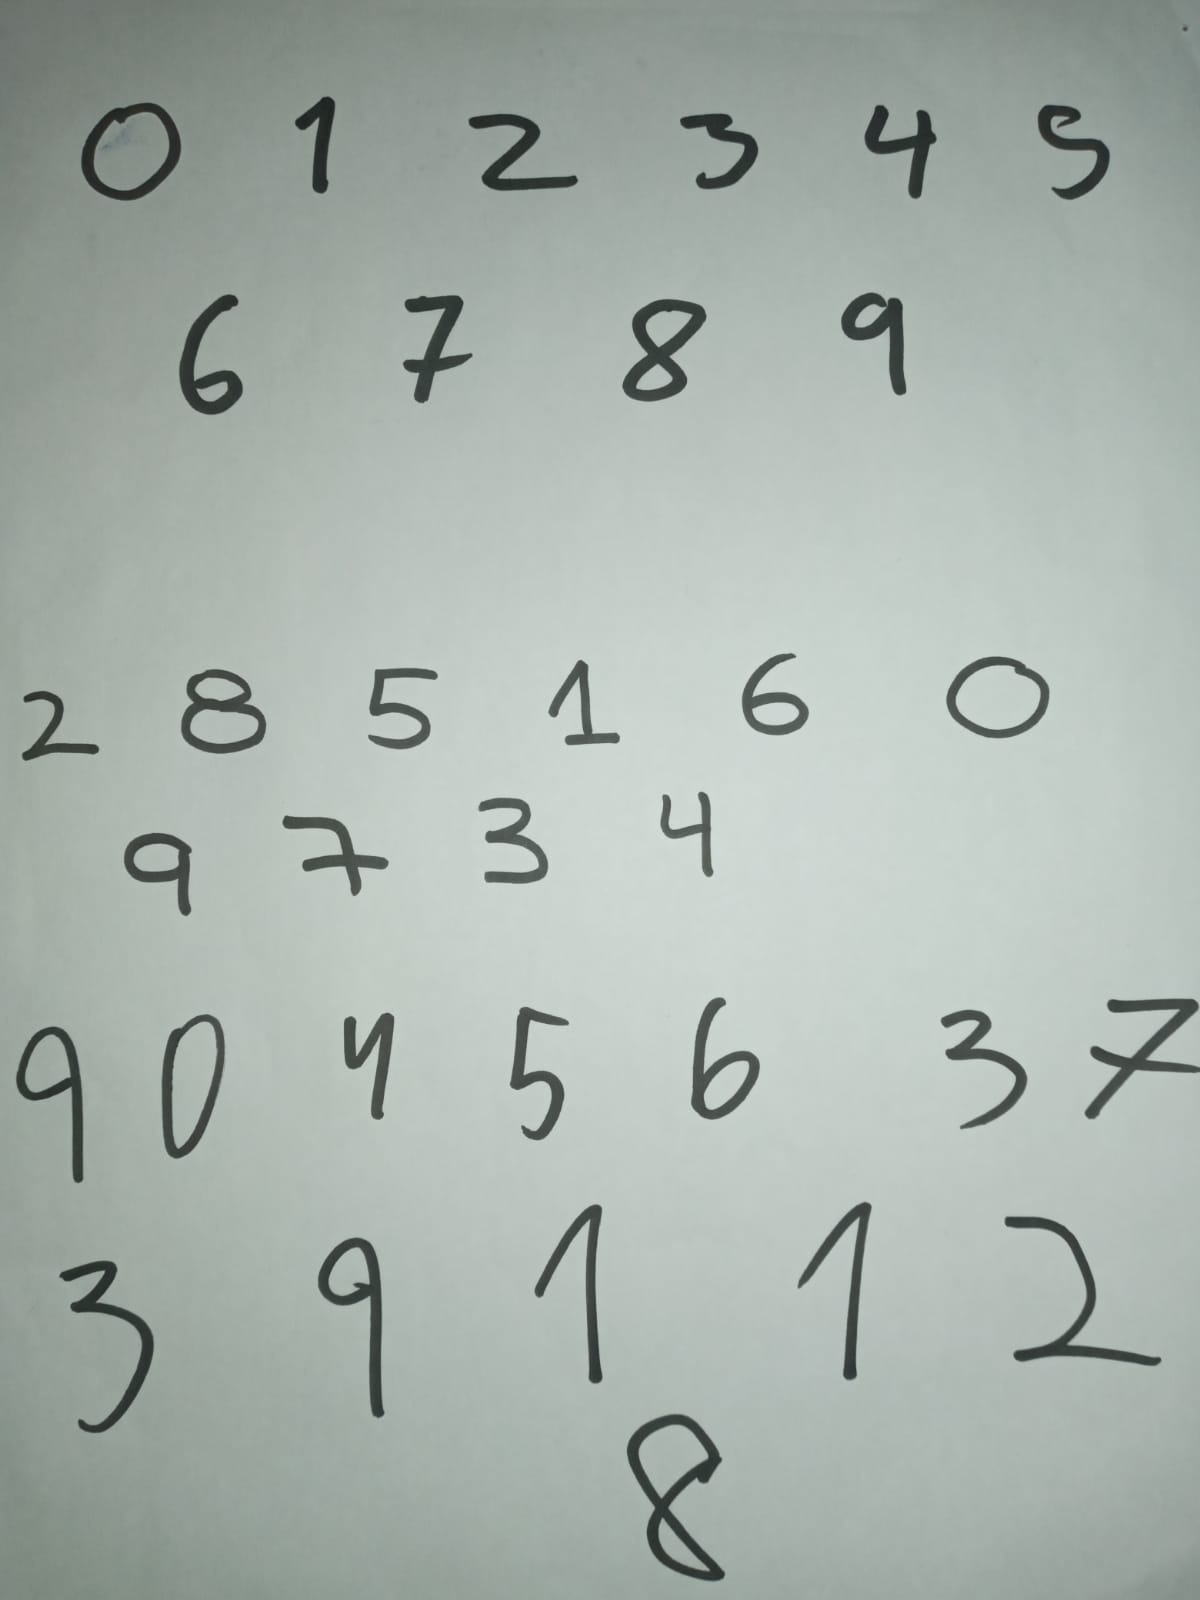 0 1 2 3 4 5
6 7 8 9
2 8 5 1 6 0
9 7 3 4
9 0 4 5 6 3 7
3 9 1 1 2
8